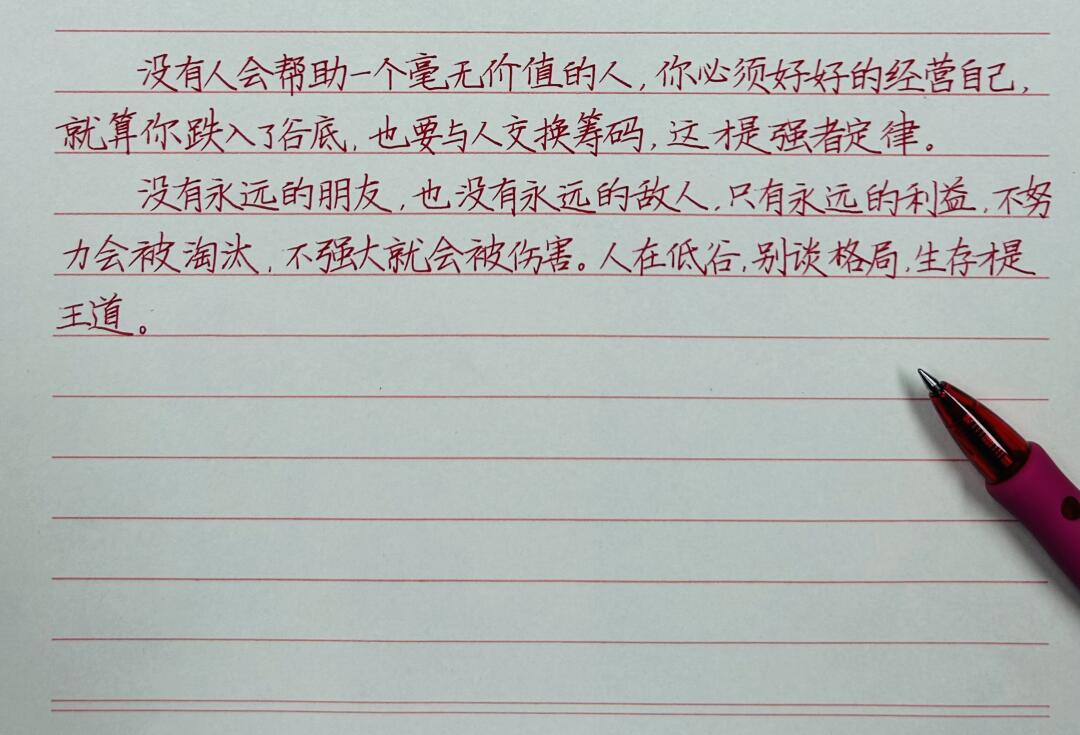 没有人会帮助一个毫无价值的人,你必须好好的经营自己,
就算你跌入了谷底,也要与人交换筹码,这才是强者定律。
没有永远的朋友,也没有永远的敌人,只有永远的利益,不努
力会被淘汰,不强大就会被伤害。人在低谷,别谈格局,生存才是
王道。